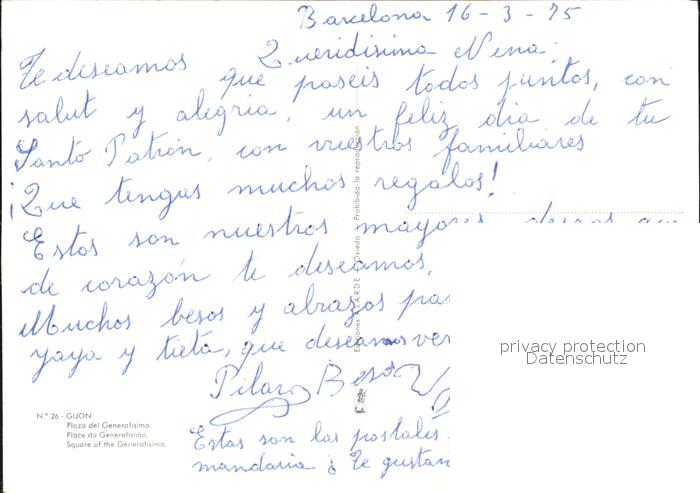 Barcelona 16-3-75
Queridisima Nena:
Te deseamos que paseis todos juntos, con
salut y alegria, un feliz dia de tu
Santo Patrón, con vuestros familiares
¡Que tengas muchos regalos!
Estos son nuestros mayores deseos que
de corazón te deseamos,
Muchos besos y abrazos pa
yaya y tieta, que deseamos ver
Pilar
Estas son las postales
mandaria ¿Te gustan
Nº 26 - GIJON
Plaza del Generalísimo.
Place du Generalísimo.
Square of the Generalísimo.
Oviedo - Prohibida la reproducción
privacy protection
Datenschutz